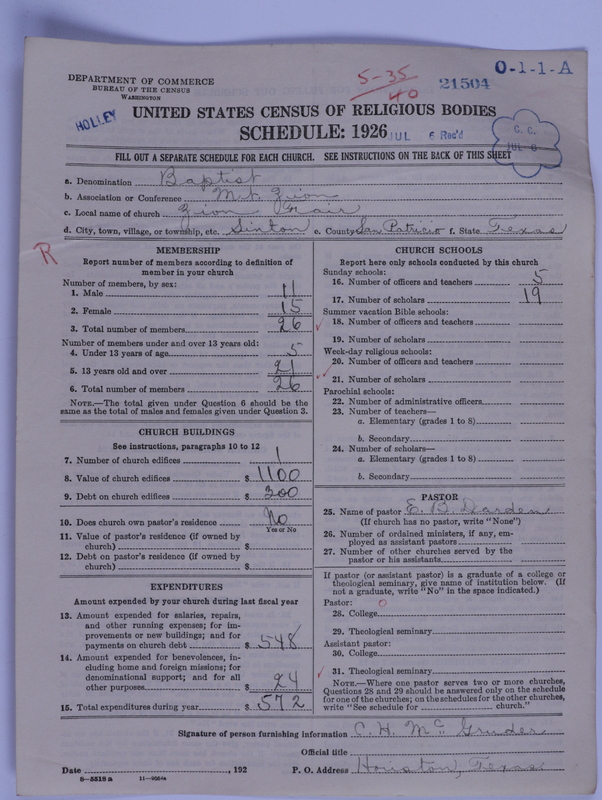 5-35
40
O-1-1-A
21504
DEPARTMENT OF COMMERCE
BUREAU OF THE CENSUS
WASHINGTON
HOLLEY
UNITED STATES CENSUS OF RELIGIOUS BODIES
SCHEDULE: 1926
JUL 6 Rec'd
C. C.
JUL
FILL OUT A SEPARATE SCHEDULE FOR EACH CHURCH. SEE INSTRUCTIONS ON THE BACK OF THIS SHEET
a. Denomination Baptist
b. Association or Conference Mt. Zion
c. Local name of church Zion Fair
d. City, town, village, or township, etc. Sinton e. County San Patricio f. State Texas
R
MEMBERSHIP
Report number of members according to definition of
member in your church
Number of members, by sex:
1. Male 11
2. Female 15
3. Total number of members 26
Number of members under and over 13 years old:
4. Under 13 years of age 5
5. 13 years old and over 21
6. Total number of members 26
NOTE.—The total given under Question 6 should be the
same as the total of males and females given under Question 3.
CHURCH BUILDINGS
See instructions, paragraphs 10 to 12
7. Number of church edifices 1
8. Value of church edifices $ 1100
9. Debt on church edifices $ 300
10. Does church own pastor's residence No
Yes or No
11. Value of pastor's residence (if owned by
church) $
12. Debt on pastor's residence (if owned by
church) $
EXPENDITURES
Amount expended by your church during last fiscal year
13. Amount expended for salaries, repairs,
and other running expenses; for im-
provements or new buildings; and for
payments on church debt $ 548
14. Amount expended for benevolences, in-
cluding home and foreign missions; for
denominational support; and for all
other purposes $ 24
15. Total expenditures during year $ 572
CHURCH SCHOOLS
Report here only schools conducted by this church
Sunday schools:
16. Number of officers and teachers 5
17. Number of scholars 19
Summer vacation Bible schools:
18. Number of officers and teachers
19. Number of scholars
Week-day religious schools:
20. Number of officers and teachers
21. Number of scholars
Parochial schools:
22. Number of administrative officers
23. Number of teachers—
a. Elementary (grades 1 to 8)
b. Secondary
24. Number of scholars—
a. Elementary (grades 1 to 8)
b. Secondary
PASTOR
25. Name of pastor E. B. Darden
(If church has no pastor, write "None")
26. Number of ordained ministers, if any, em-
ployed as assistant pastors
27. Number of other churches served by the
pastor or his assistants
If pastor (or assistant pastor) is a graduate of a college or
theological seminary, give name of institution below. (If
not a graduate, write "No" in the space indicated.)
Pastor: O
28. College
29. Theological seminary
Assistant pastor:
30. College
31. Theological seminary
NOTE.—Where one pastor serves two or more churches,
Questions 28 and 29 should be answered only on the schedule
for one of the churches; on the schedules for the other churches,
write "See schedule for church."
Signature of person furnishing information C. H. Mc Gruder
Official title
Date , 192 P. O. Address Houston, Texas
8-5518a 11-9264a